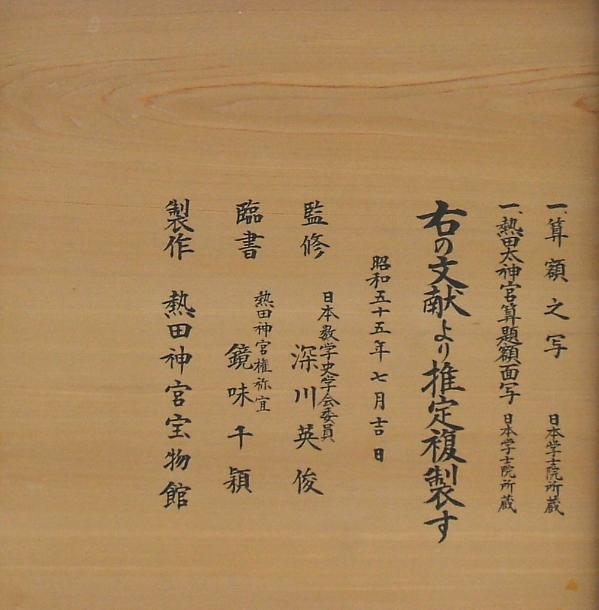 一、算額之写 日本学士院所蔵
一、熱田太神宮算題額面写 日本学士院所蔵
右の文献より推定複製す
昭和五十五年七月吉日
監修 日本数学史学会委員 深川英俊
臨書 熱田神宮権祢宜 鏡味千穎
製作 熱田神宮宝物館